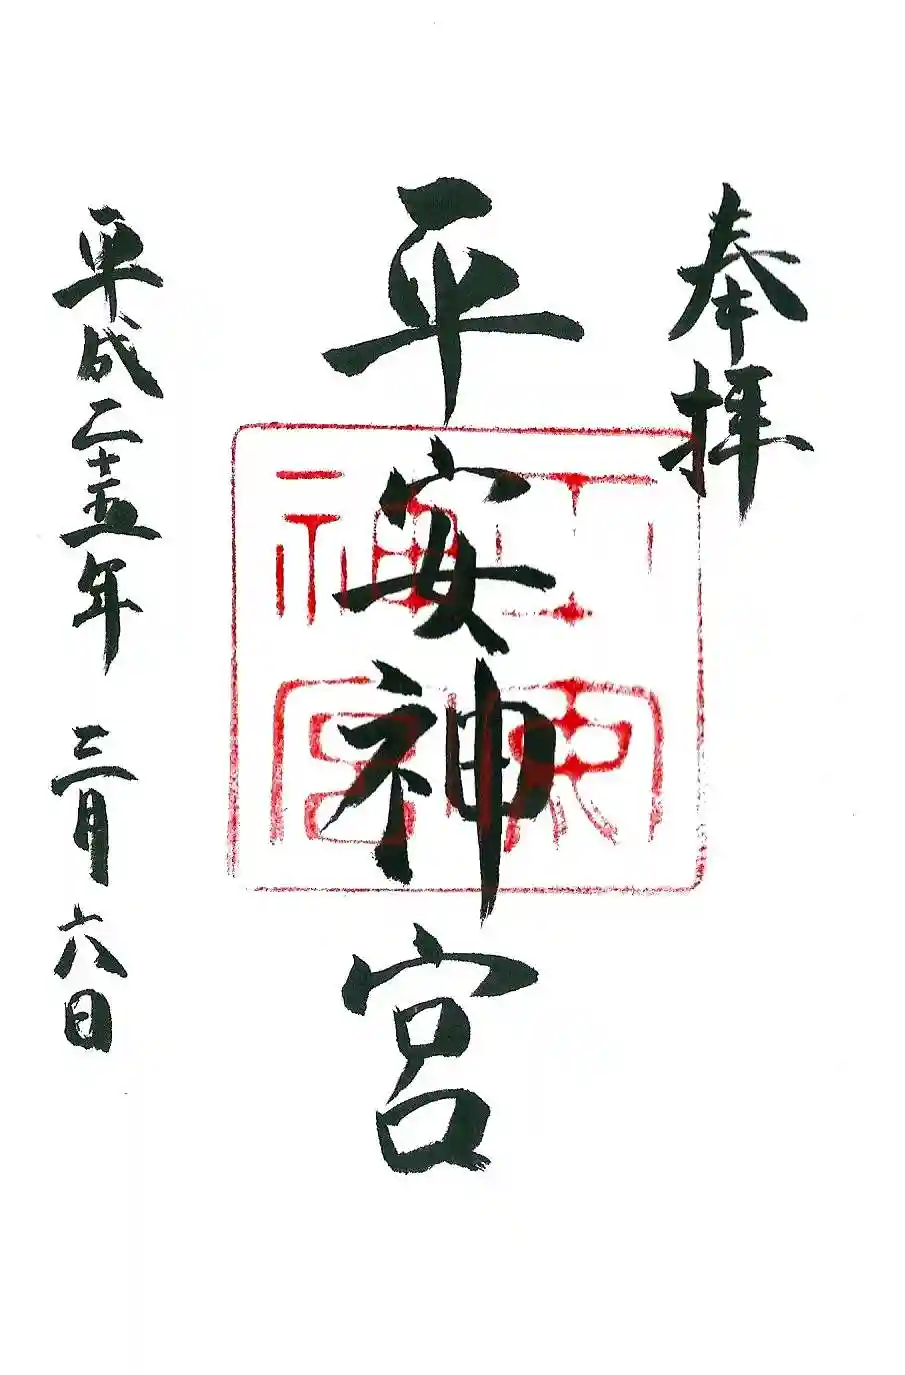 奉拝
平安神宮
平安神宮
平成二十五年 三月六日